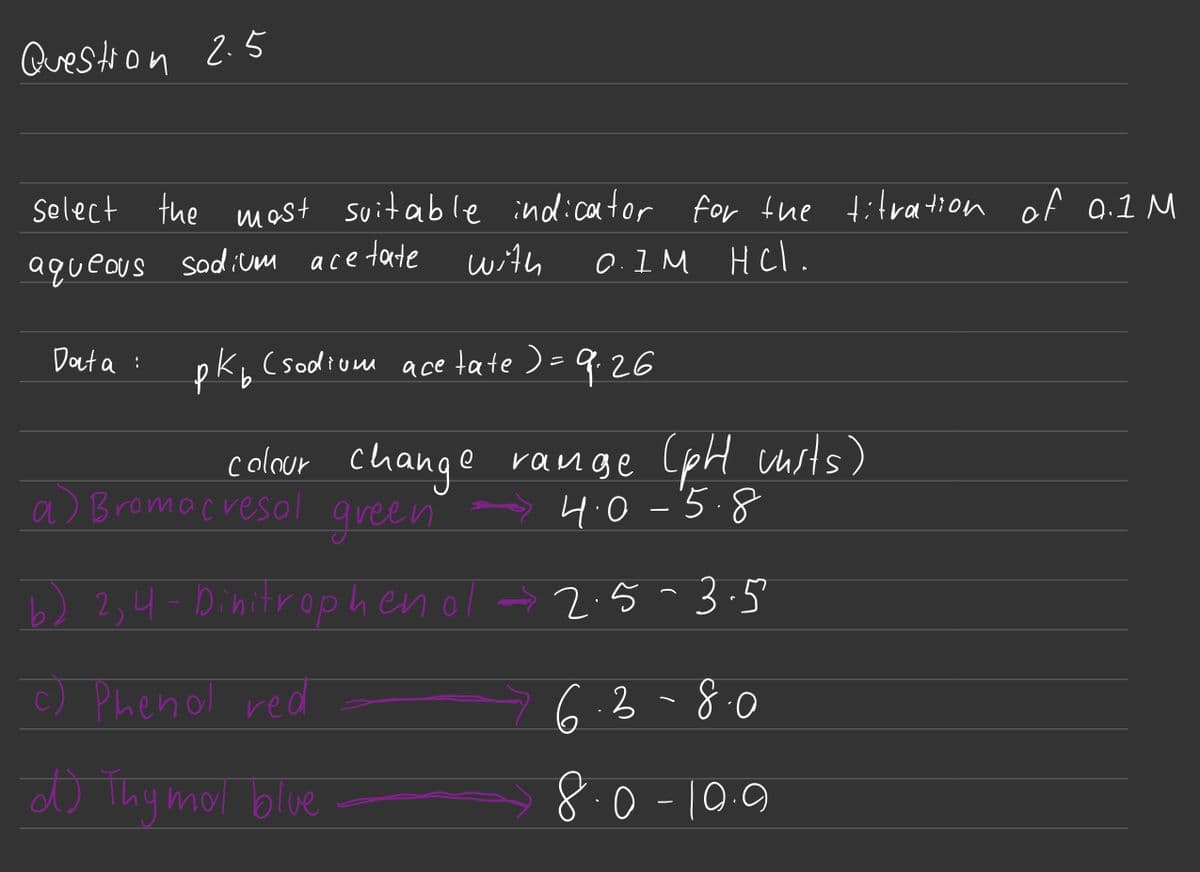 Question 2.5
Select the most suitable indicator for the titration of 0.1 M
aqueous sodium acetate with 0.1 M HCl.
Data : pKb (sodium acetate) = 9.26
colour change range (pH units)
a) Bromocresol green → 4.0 - 5.8
b) 2,4 - Dinitrophenol → 2.5 - 3.5
c) Phenol red → 6.3 - 8.0
d) Thymol blue → 8.0 - 10.0